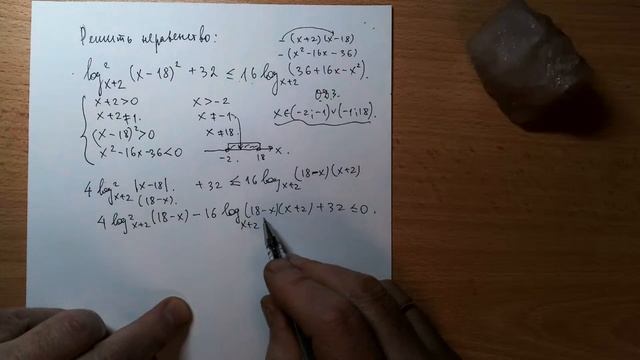 Решить неравенство:
-(x+2)(x-18)
-(x²-16x-36)
log²ₓ₊₂ (x-18)² + 32 ≤ 16 logₓ₊₂ (36+16x-x²).
О.Д.З.
x∈(-2;-1)∪(-1;18)
x+2>0
x+2≠1.
(x-18)²>0
x²-16x-36<0
x>-2
x≠-1
x≠18
-2 18 x.
4 log²ₓ₊₂ |x-18|. + 32 ≤ 16 logₓ₊₂ (18-x)(x+2)
(18-x).
4 log²ₓ₊₂ (18-x) - 16 logₓ₊₂ (18-x)(x+2) + 32 ≤ 0.